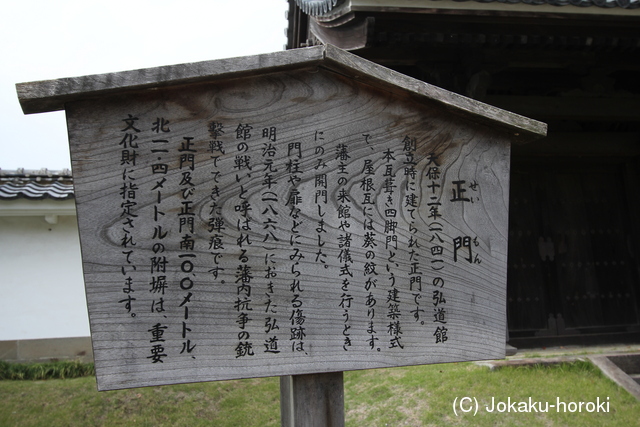 正門
せい もん
天保十二年(一八四一)の弘道館
創立時に建てられた正門です。
本瓦葺き四脚門という建築様式
で、屋根瓦には葵の紋があります。
藩主の来館や諸儀式を行うとき
にのみ開門しました。
門柱や扉などにみられる傷跡は、
明治元年(一八六八)におきた弘道
館の戦いと呼ばれる藩内抗争の銃
撃戦でできた弾痕です。
正門及び正門南一〇〇メートル、
北一一・四メートルの附塀は、重要
文化財に指定されています。
(C) Jokaku-horoki